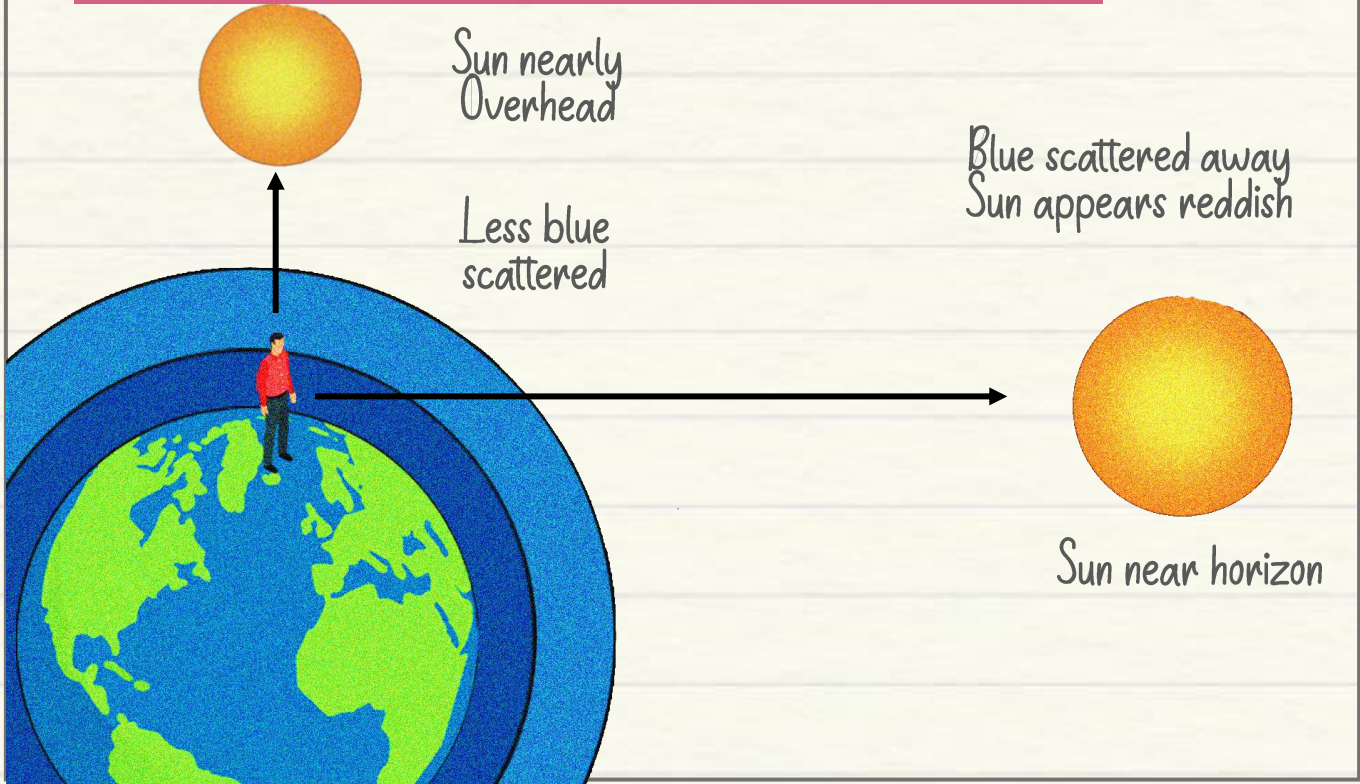 Sun nearly
Overhead
Less blue
scattered
Blue scattered away
Sun appears reddish
Sun near horizon